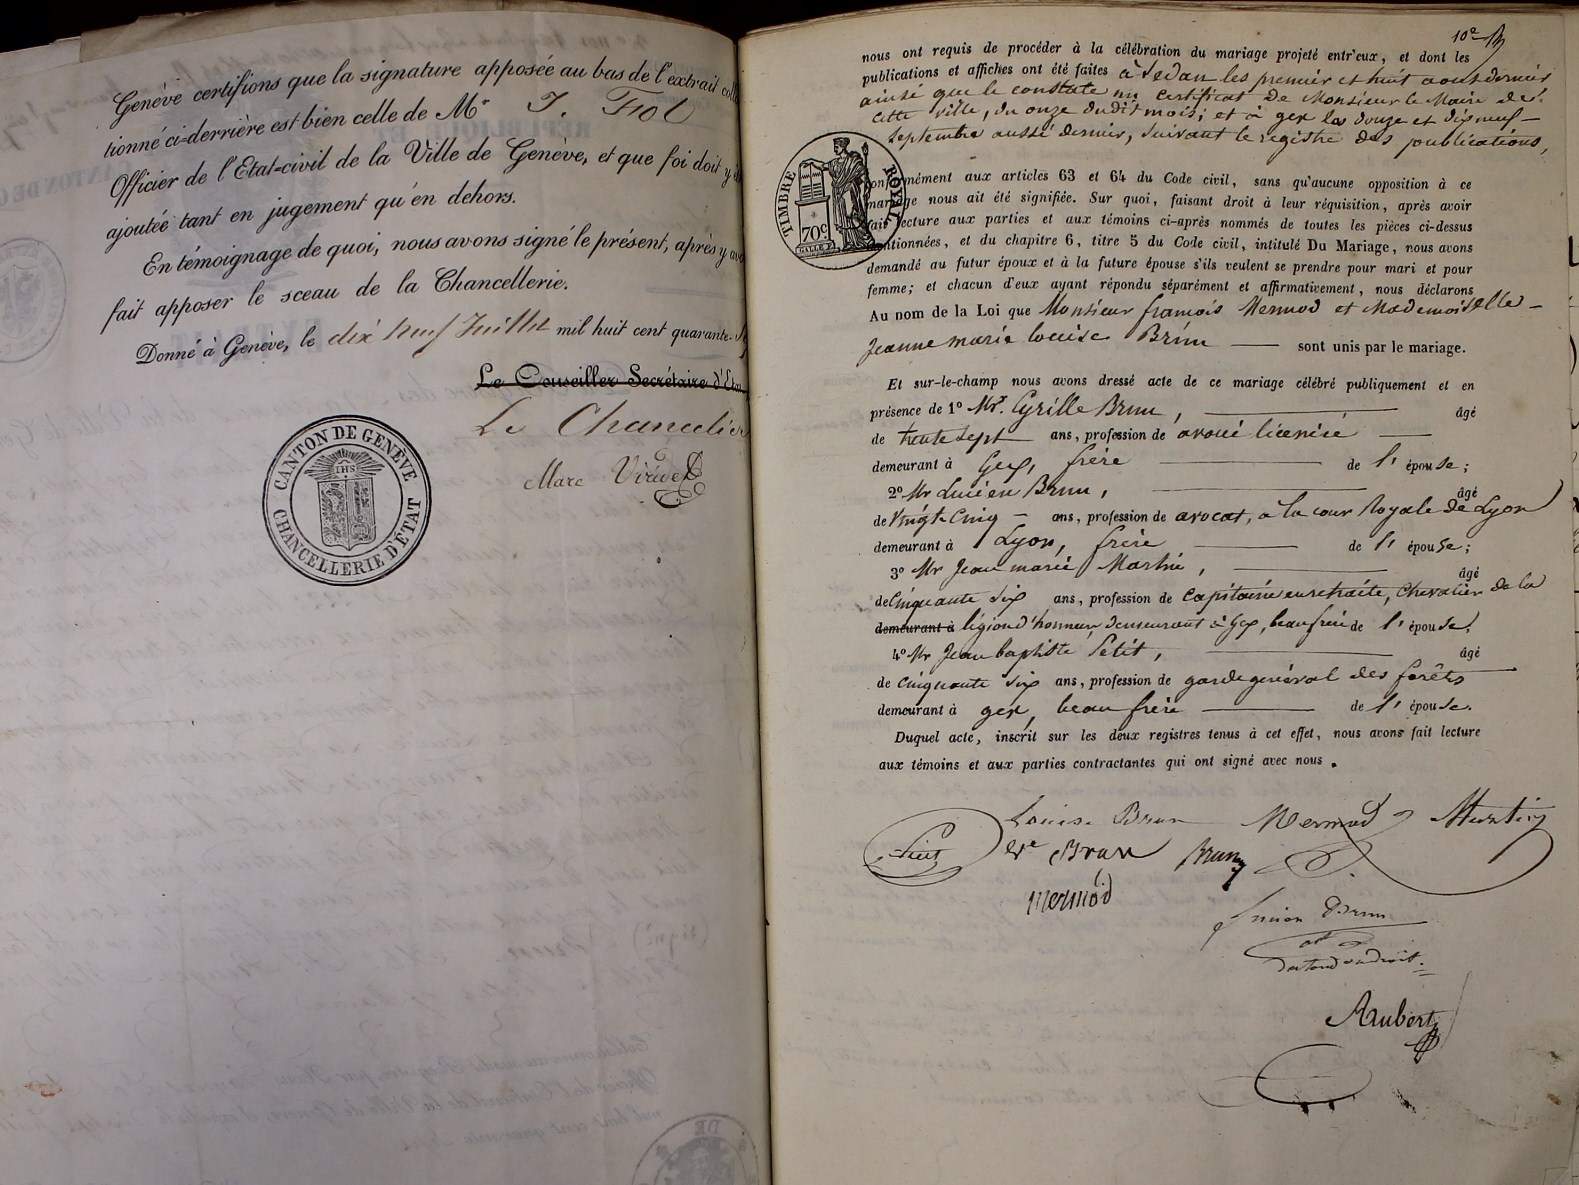 Genève certifions que la signature apposée au bas de l'extrait
tionné ci-derrière est bien celle de Mr J. Fiol
Officier de l'Etat-civil de la Ville de Genève, et que foi doit y
ajoutée tant en jugement qu'en dehors.
En témoignage de quoi, nous avons signé le présent, après y
fait apposer le sceau de la Chancellerie.
Donné à Genève, le dix neuf Juillet mil huit cent quarante-
Le Conseiller Secrétaire d'Etat
Le Chancelier
Marc Viridet
CANTON DE GENÈVE
IHS
CHANCELLERIE D'ÉTAT
10e
nous ont requis de procéder à la célébration du mariage projeté entr'eux, et dont les
publications et affiches ont été faites à Sedan les premier et huit aout dernier
ainsi que le constate un certificat de Monsieur le Maire de
cette ville, du onze dudit mois; et à gex les douze et dix neuf
septembre aussi dernier, suivant le registre des publications,
TIMBRE ROYAL
70c
conformément aux articles 63 et 64 du Code civil, sans qu'aucune opposition à ce
mariage nous ait été signifiée. Sur quoi, faisant droit à leur réquisition, après avoir
fait lecture aux parties et aux témoins ci-après nommés de toutes les pièces ci-dessus
mentionnées, et du chapitre 6, titre 5 du Code civil, intitulé Du Mariage, nous avons
demandé au futur époux et à la future épouse s'ils veulent se prendre pour mari et pour
femme; et chacun d'eux ayant répondu séparément et affirmativement, nous déclarons
Au nom de la Loi que Monsieur françois Mermod et Mademoiselle
Jeanne marie louise Brun sont unis par le mariage.
Et sur-le-champ nous avons dressé acte de ce mariage célébré publiquement et en
présence de 1o Mr. Cyrille Brun, âgé
de trente sept ans, profession de avoué licencié
demeurant à Gex, frère de l'épouse;
2o Mr Lucien Brun, âgé
de vingt cinq ans, profession de avocat, à la cour Royale de Lyon
demeurant à Lyon, frère de l'épouse;
3o Mr Jean marie Martin, âgé
de cinquante six ans, profession de capitaine en retraite, chevalier de la
demeurant à légion d'honneur, demeurant à Gex, beau frère de l'épouse;
4o Mr Jean baptiste Petit, âgé
de cinquante six ans, profession de garde général des forêts
demeurant à gex, beau frère de l'épouse.
Duquel acte, inscrit sur les deux registres tenus à cet effet, nous avons fait lecture
aux témoins et aux parties contractantes qui ont signé avec nous.
Louise Brun Mermod Martin
Petit Ve Brun Brun
mermod
Lucien Brun
docteur en droit
Aubert